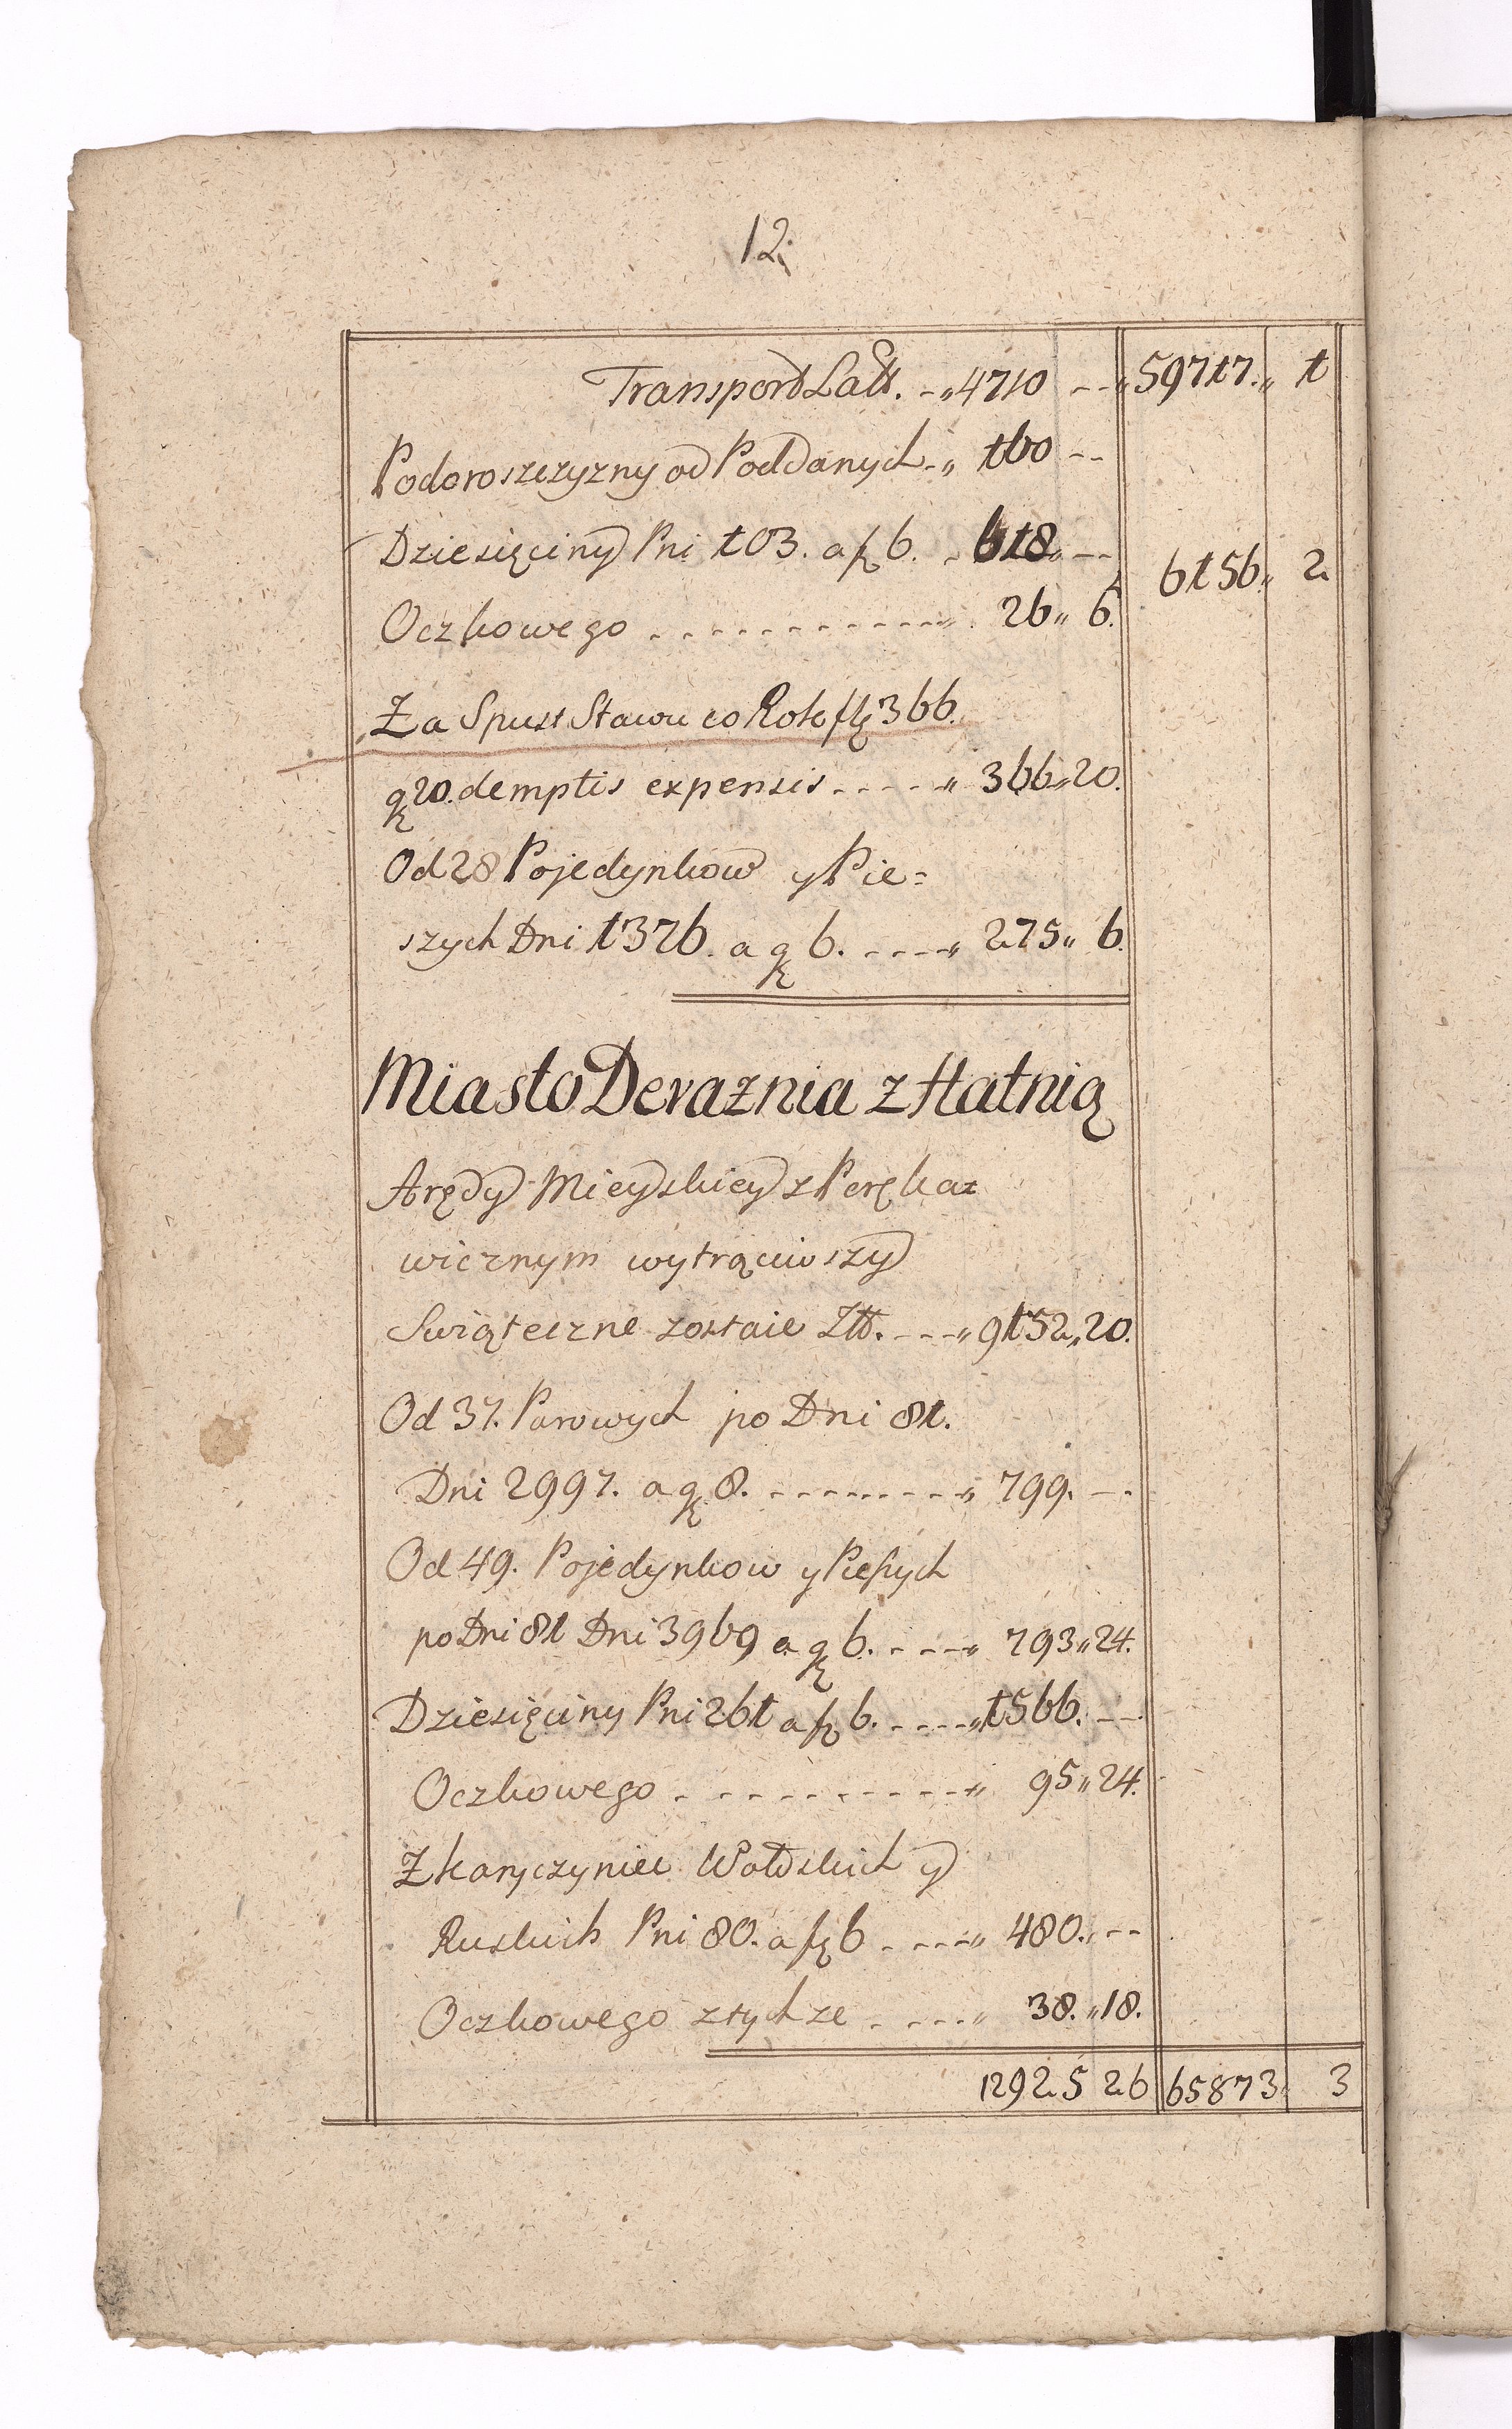 12.
Transport Latt. -„ 4710 -- „ 59717. „ 1
Podoroszczyzny od Poddanych -„ 160 --
Dziesięciny Pni 103. a fl 6. - 618 „ --
6156 „ 2
Oczkowego ------------ „ 26 „ 6.
Za Spust Stawu co Rok fl 366.
gr 20. demptis expensis ----- „ 366 „ 20.
Od 28 Pojedynkow y Pie=
szych Dni 1376. a gr 6. ---- „ 275 „ 6.
Miasto Deraznia z Hatnią
Arędy Mieyskiey z Poręka=
wicznym wytrąciwszy
Swiąteczne zostaie Złł. ---- „ 9152 „ 20.
Od 37. Parowych po Dni 81.
Dni 2997. a gr 8. --------- „ 799. --
Od 49. Pojedynkow y Pieszych
po Dni 81 Dni 3969 a gr 6. ---- „ 793 „ 24.
Dziesięciny Pni 261 a fl 6. ----- „ 1566. --
Oczkowego ----------- „ 95 „ 24.
Z Wołoskich y
Ruskich Pni 80. a fl 6 ----- „ 480. --
Oczkowego z tychze ----- „ 38. „ 18.
12925 26 65873 3